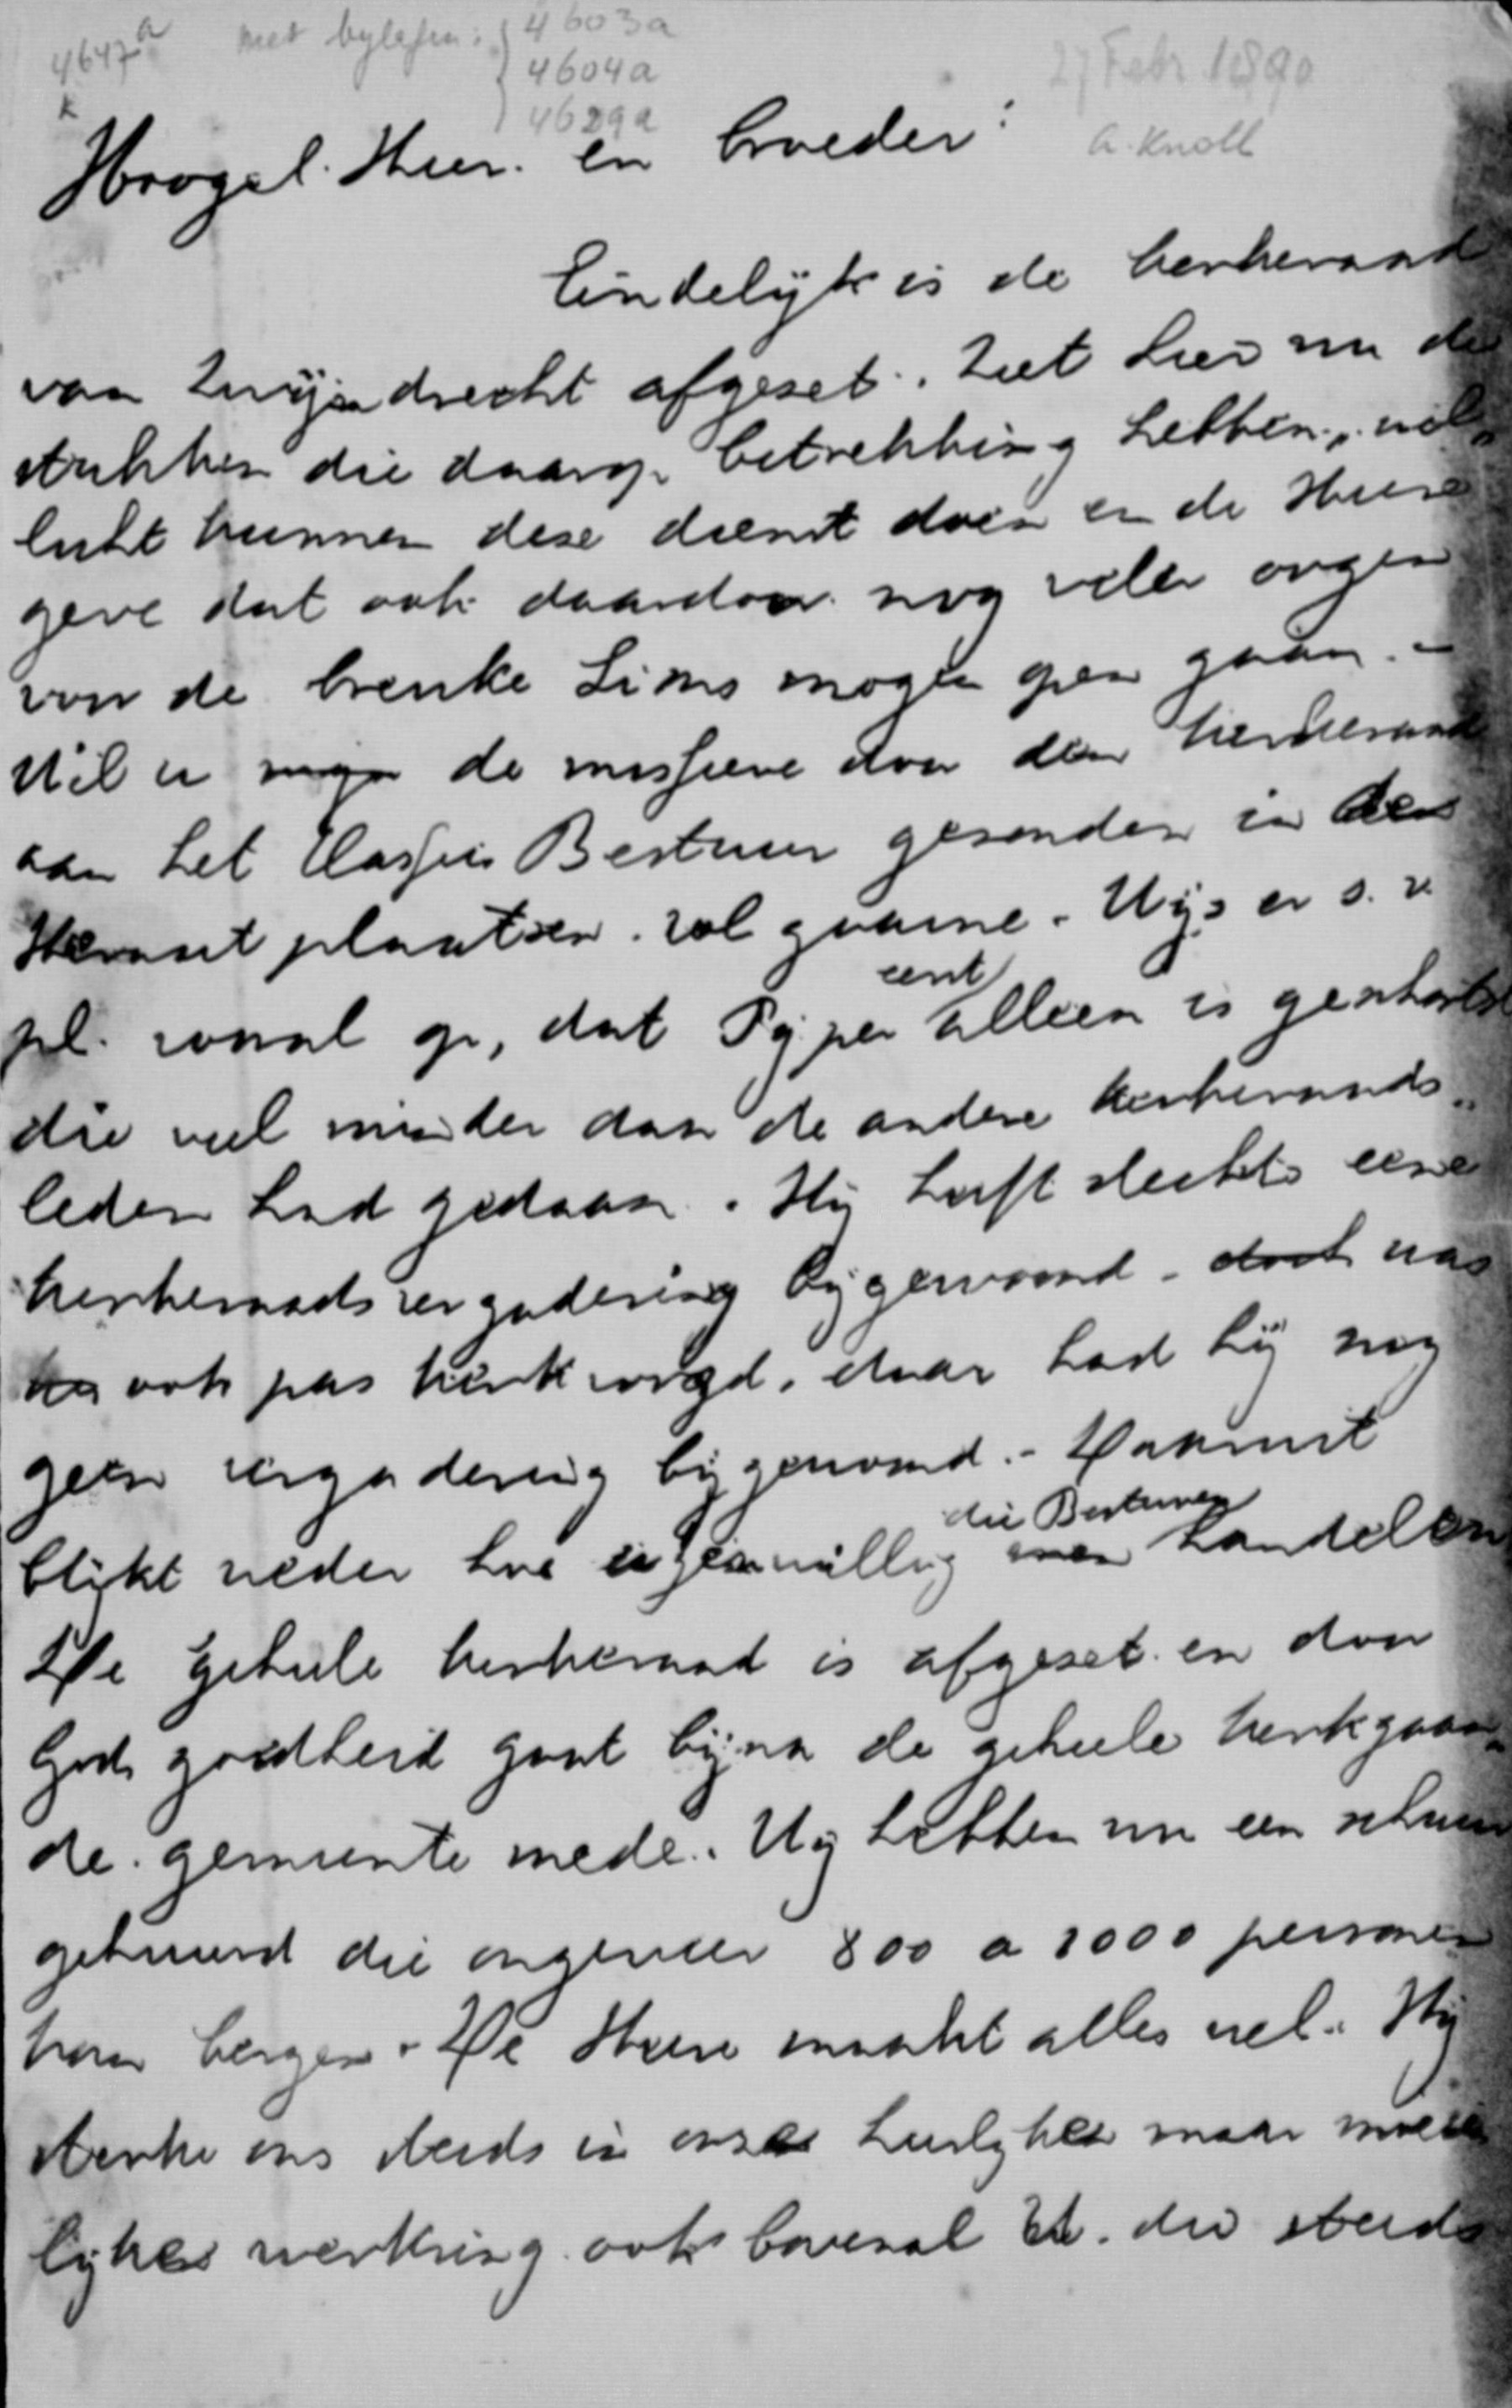 4647a
k
met bylagen: 4603a
4604a
4629a
27 Febr 1890
A. Knoll
Hoogel. Heer. en broeder!
Eindelijk is de kerkeraad
van Zwijndrecht afgeset. Ziet hier nu de
stukken die daarop betrekking hebben, wel-
licht kunnen dese dienst doen en de Heere
geve dat ook daardoor nog veler oogen
voor de kranke Sions mogen open gaan. -
Wil u de missieve door den kerkeraad
aan het Classic. Bestuur gesonden in den
Heraut plaatsen. sol gaarne. Wijs er s. v.
pl. vooral op, dat Pijper eerst alleen is geschorst
die veel minder dan de andere kerkeraads-
leden had gedaan. Hij heeft slechts eene
kerkeraadsvergadering bijgewoond - doch was
ook pas kerkvoogd, daar had hij nog
geen vergadering bijgewoond. - Daaruit
blijkt weder hoe eigenwillig die Besturen handelen
De geheele kerkeraad is afgeset en door
Gods goedheid gaat bijna de geheele kerkgaan-
de gemeente mede. Wij hebben nu een schuur
gehuurd die ongeveer 800 a 1000 personen
kan bergen. De Heere maakt alles wel. Hij
sterke ons steeds in onze heerlyken maar moeie-
lyken werkkring ook bovenal U. die steeds